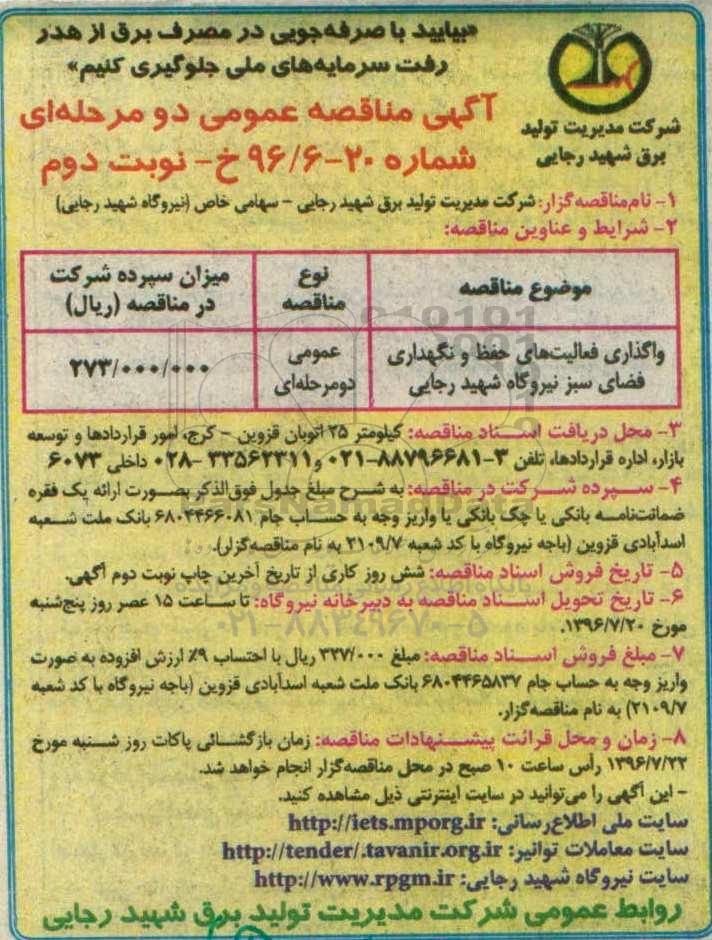 «بیایید با صرفه‌جویی در مصرف برق از هدر
رفت سرمایه‌های ملی جلوگیری کنیم»
شرکت مدیریت تولید
برق شهید رجایی
آگهی مناقصه عمومی دو مرحله‌ای
شماره ۲۰-۹۶/۶ خ- نوبت دوم
۱- نام‌مناقصه‌گزار: شرکت مدیریت تولید برق شهید رجایی - سهامی خاص (نیروگاه شهید رجایی)
۲- شرایط و عناوین مناقصه:
موضوع مناقصه
نوع مناقصه
میزان سپرده شرکت در مناقصه (ریال)
واگذاری فعالیت‌های حفظ و نگهداری فضای سبز نیروگاه شهید رجایی
عمومی دومرحله‌ای
۲۷۳/۰۰۰/۰۰۰
۳- محل دریافت اسناد مناقصه: کیلومتر ۲۵ اتوبان قزوین - کرج، امور قراردادها و توسعه
بازار، اداره قراردادها، تلفن ۳-۸۸۷۹۶۶۸۱-۰۲۱ و ۳۳۵۶۲۳۱۱-۰۲۸ داخلی ۶۰۷۳
۴- سپرده شرکت در مناقصه: به شرح مبلغ جدول فوق‌الذکر بصورت ارائه یک فقره
ضمانت‌نامه بانکی یا چک بانکی یا واریز وجه به حساب جام ۶۸۰۴۴۶۶۰۸۱ بانک ملت شعبه
اسدآبادی قزوین (باجه نیروگاه با کد شعبه ۲۱۰۹/۷ به نام مناقصه‌گزار).
۵- تاریخ فروش اسناد مناقصه: شش روز کاری از تاریخ آخرین چاپ نوبت دوم آگهی.
۶- تاریخ تحویل اسناد مناقصه به دبیرخانه نیروگاه: تا ساعت ۱۵ عصر روز پنج‌شنبه
مورخ ۱۳۹۶/۷/۲۰.
۰۲۱-۸۸۳۴۹۶۷۰-۵
۷- مبلغ فروش اسناد مناقصه: مبلغ ۳۲۷/۰۰۰ ریال با احتساب ۹٪ ارزش افزوده به صورت
واریز وجه به حساب جام ۶۸۰۴۴۶۵۸۳۷ بانک ملت شعبه اسدآبادی قزوین (باجه نیروگاه با کد شعبه
۲۱۰۹/۷) به نام مناقصه‌گزار.
۸- زمان و محل قرائت پیشنهادات مناقصه: زمان بازگشائی پاکات روز شنبه مورخ
۱۳۹۶/۷/۲۲ رأس ساعت ۱۰ صبح در محل مناقصه‌گزار انجام خواهد شد.
- این آگهی را می‌توانید در سایت اینترنتی ذیل مشاهده کنید.
سایت ملی اطلاع‌رسانی: http://iets.mporg.ir
سایت معاملات توانیر: http://tender/.tavanir.org.ir
سایت نیروگاه شهید رجایی: http://www.rpgm.ir
روابط عمومی شرکت مدیریت تولید برق شهید رجایی